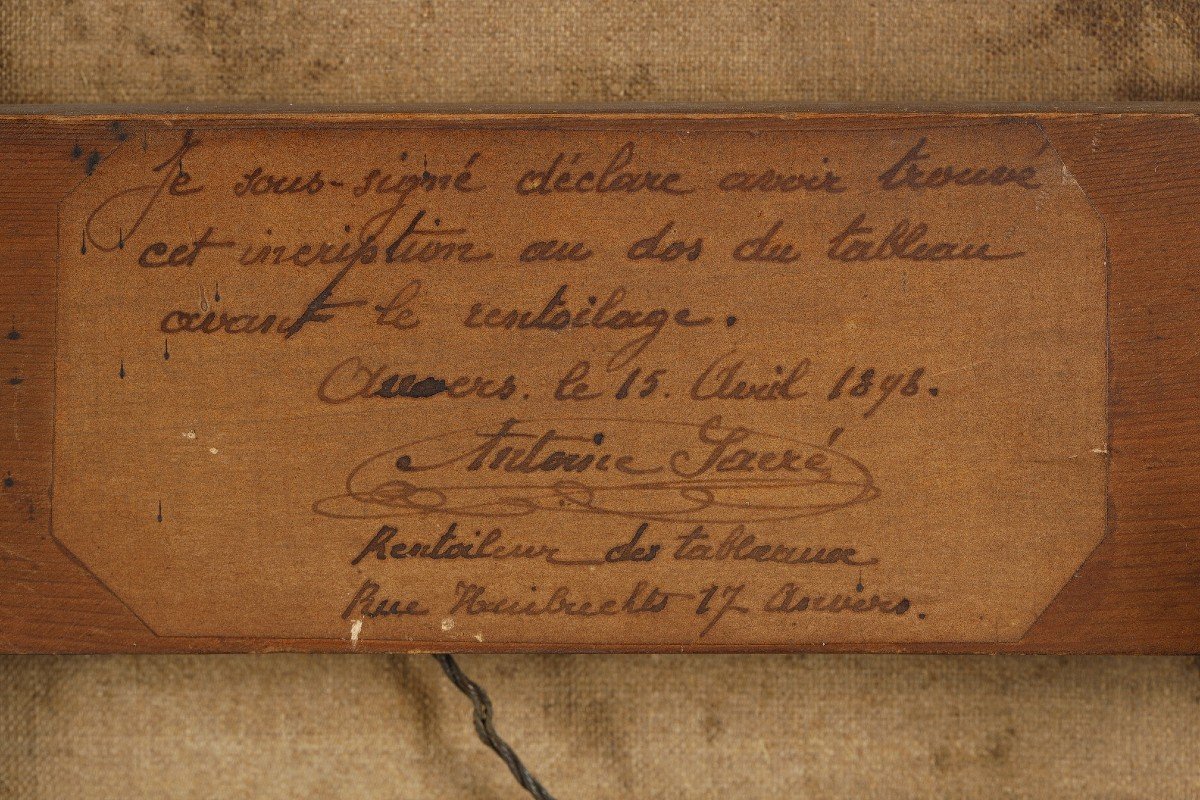 Je sous-signé déclare avoir trouvé
cet incription au dos du tableau
avant le rentoilage.
Anvers. le 15. Avril 1898.
Antoine Sacré
Rentoileur des tableaux
Rue Huibrechts 17 Anvers.